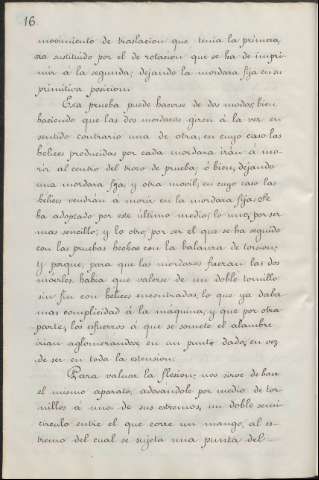 16
movimiento de traslacion que tenia la primera,
sea sustituido por el de rotacion que se ha de impri-
mir á la segunda; dejando la mordaza fija en su
primitiva posicion.
Esa prueba puede hacerse de dos modos; bien
haciendo que las dos mordazas giren á la vez en
sentido contrario una de otra, en cuyo caso las
hélices producidas por cada mordaza irán á mo-
rir al centro del trozo de prueba; ó bien, dejando
una mordaza fija, y otra movil, en cuyo caso las
hélices vendrán á morir en la mordaza fija. Se
ha adoptado por este último medio; lo uno, por ser
mas sencillo; y lo otro por ser el que se ha seguido
con las pruebas hechas con la balanza de torsion;
y porque, para que las mordazas fueran las dos
moviles, habia que valerse de un doble tornillo
sin fin con hélices encontradas, lo que ya daba
mas complicidad á la maquina; y que por otra
parte, los esfuerzos á que se somete el alambre
irian aglomerandose en un punto dado, en vez
de ser en toda la estension.
Para valuar la flexion, nos sirve de base
el mismo aparato, adosandole por medio de tor-
nillos á uno de sus estremos, un doble semi-
circulo entre el que corre un mango, al es-
tremo del cual se sujeta una punta del